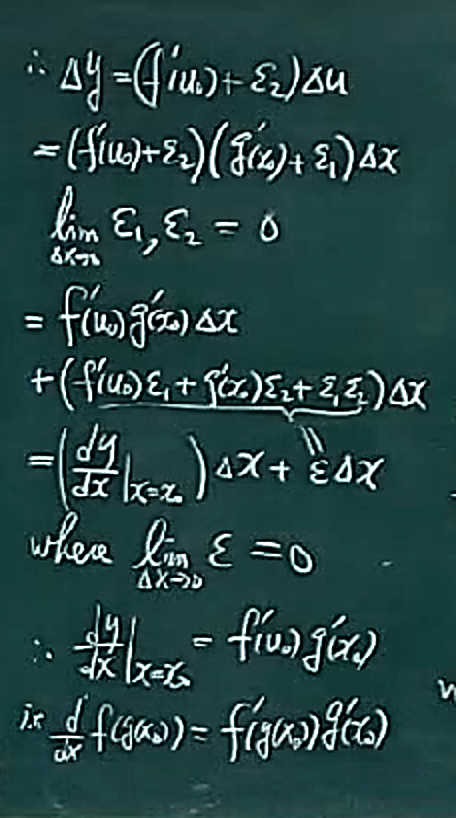 ∴ Δy = (f'(u₀) + ε₂) Δu
= (f'(u₀) + ε₂)(g'(x₀) + ε₁) Δx
lim ε₁, ε₂ = 0
Δx→0
= f'(u₀) g'(x₀) Δx
+ (f'(u₀) ε₁ + g'(x₀) ε₂ + ε₁ ε₂) Δx
= (dy/dx |x=x₀) Δx + ε Δx
where lim ε = 0
Δx→0
∴ dy/dx |x=x₀ = f'(u₀) g'(x₀)
ie d/dx f(g(x₀)) = f'(g(x₀)) g'(x₀)